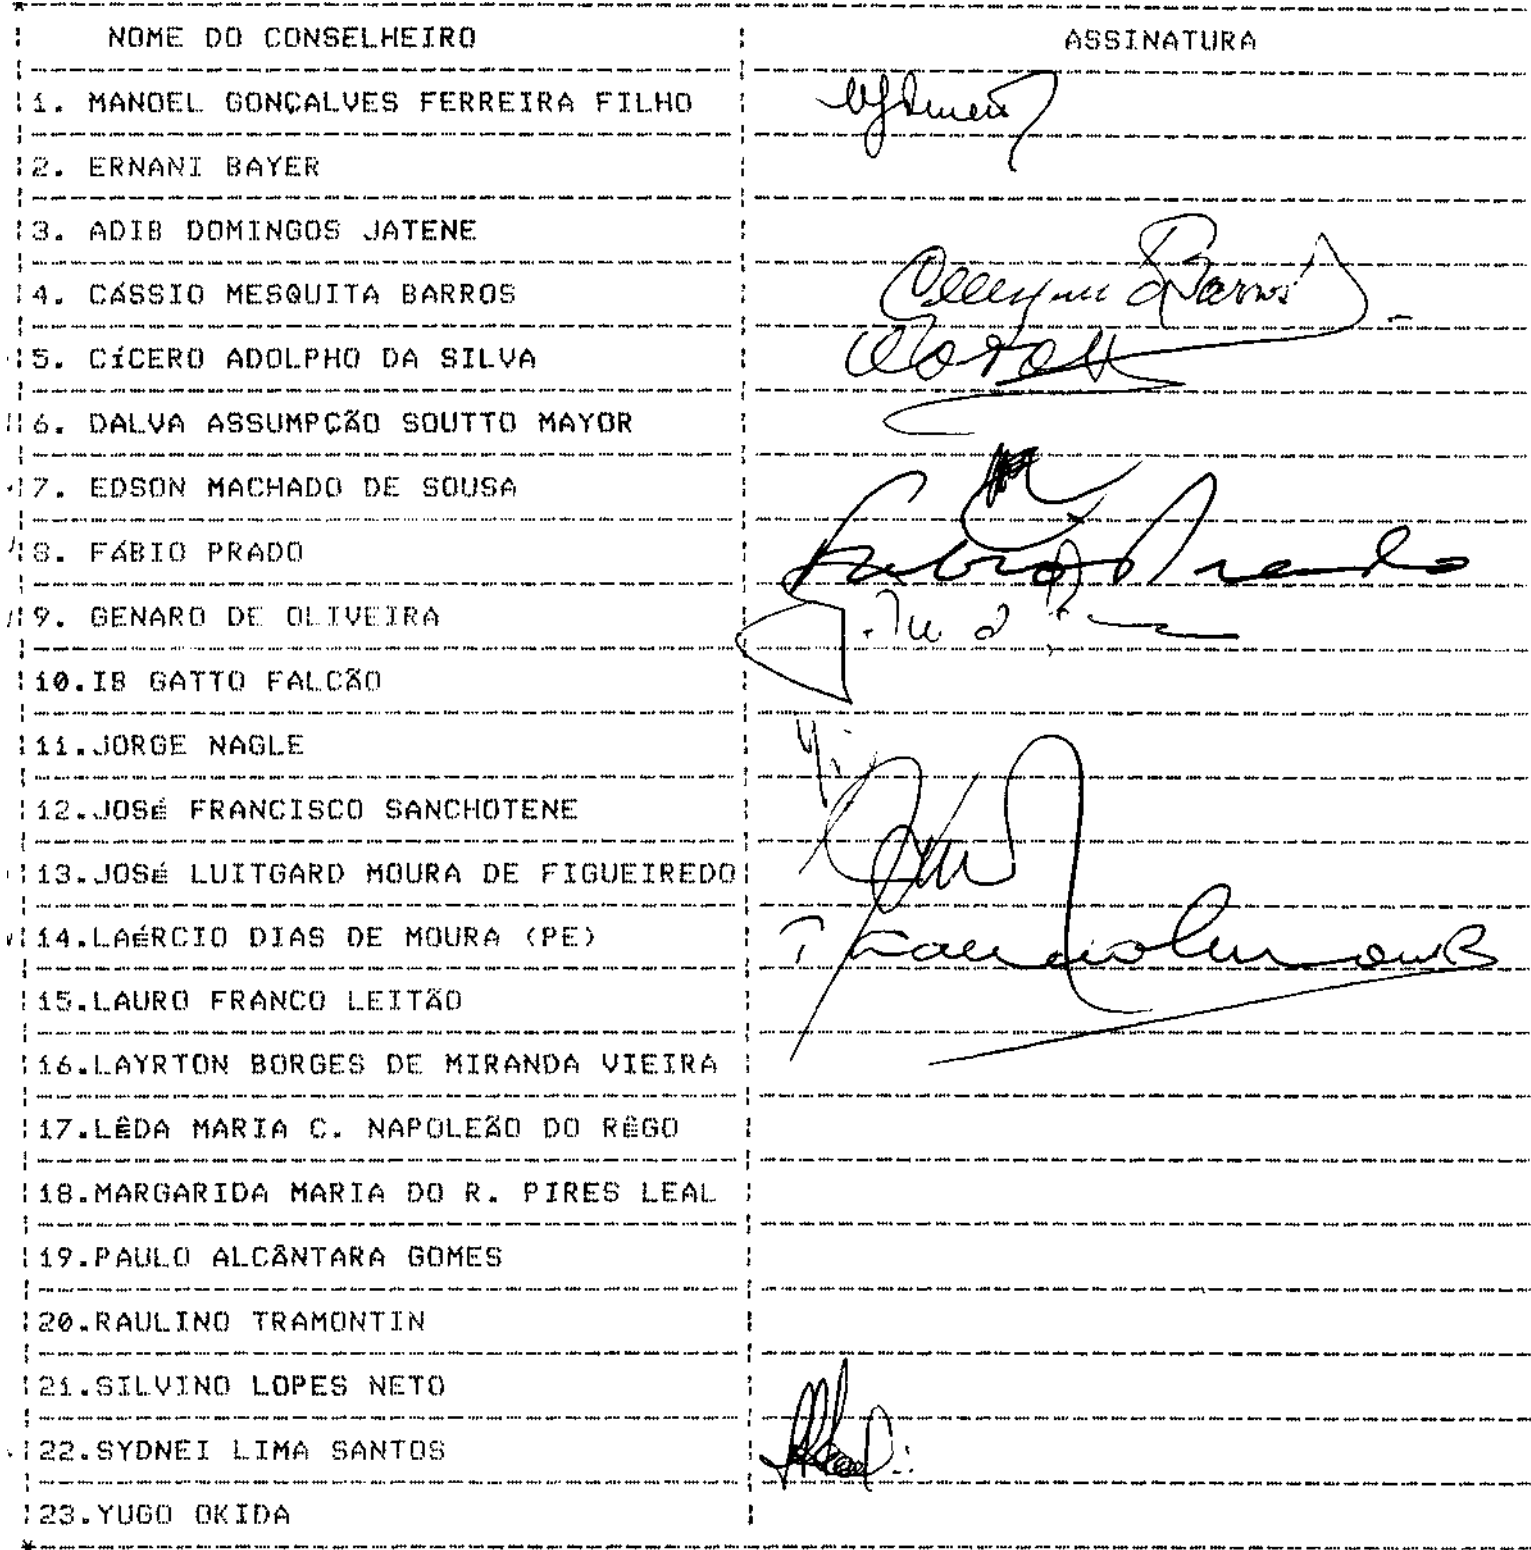 NOME DO CONSELHEIRO ASSINATURA
1. MANOEL GONÇALVES FERREIRA FILHO
2. ERNANI BAYER
3. ADIB DOMINGOS JATENE
4. CÁSSIO MESQUITA BARROS Barros
5. CíCERO ADOLPHO DA SILVA
6. DALVA ASSUMPCÃO SOUTTO MAYOR
7. EDSON MACHADO DE SOUSA
8. FÁBIO PRADO Fabio Prado
9. GENARO DE OLIVEIRA
10.IB GATTO FALCÃO
11.JORGE NAGLE
12.JOSÉ FRANCISCO SANCHOTENE
13.JOSÉ LUITGARD MOURA DE FIGUEIREDO
14.LAÉRCIO DIAS DE MOURA (PE)
15.LAURO FRANCO LEITÃO
16.LAYRTON BORGES DE MIRANDA VIEIRA
17.LÊDA MARIA C. NAPOLEÃO DO RÊGO
18.MARGARIDA MARIA DO R. PIRES LEAL
19.PAULO ALCÂNTARA GOMES
20.RAULINO TRAMONTIN
21.SILVINO LOPES NETO
22.SYDNEI LIMA SANTOS
23.YUGO OKIDA